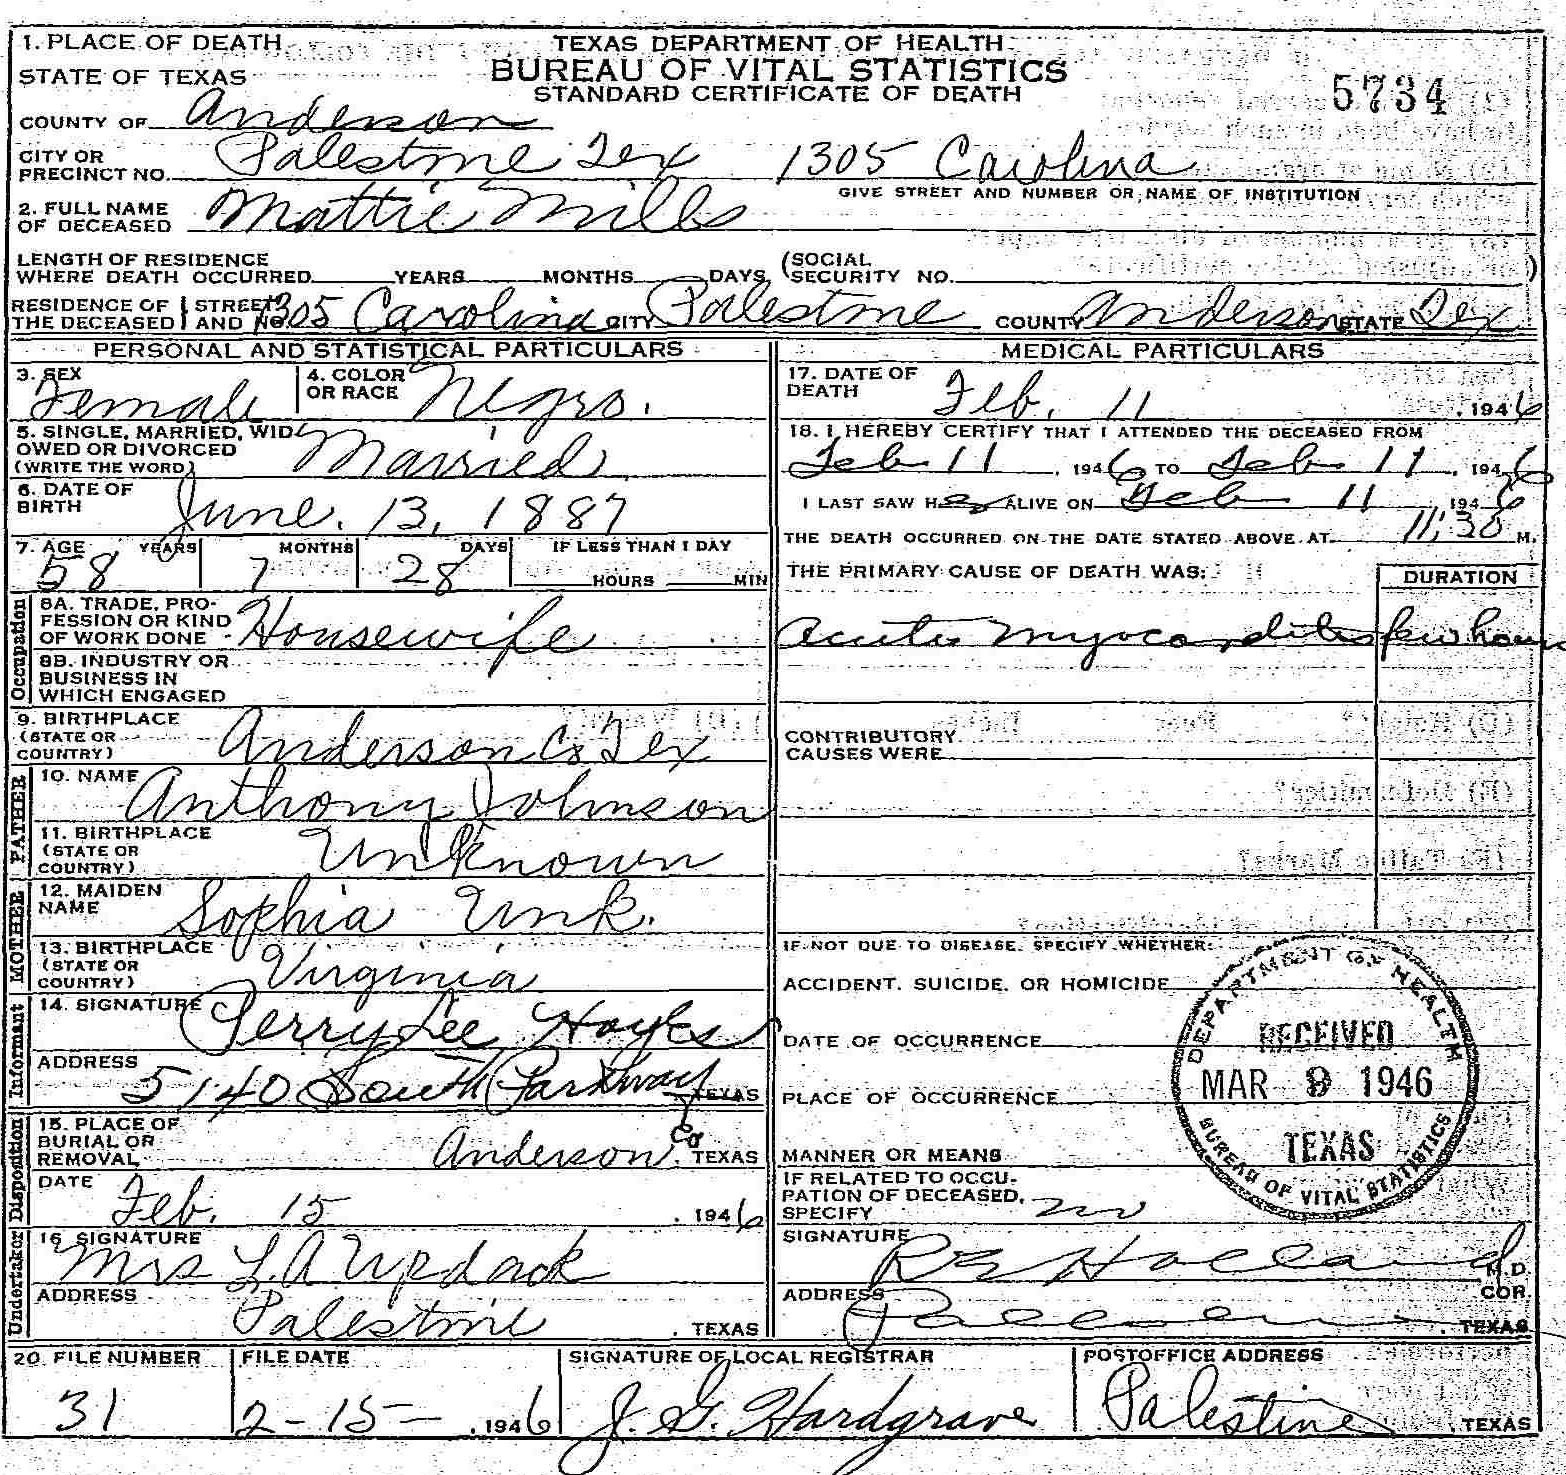 1. PLACE OF DEATH
TEXAS DEPARTMENT OF HEALTH
STATE OF TEXAS
BUREAU OF VITAL STATISTICS
STANDARD CERTIFICATE OF DEATH
5734
COUNTY OF Anderson
CITY OR PRECINCT NO. Palestine Tex 1305 Carolina
GIVE STREET AND NUMBER OR NAME OF INSTITUTION
2. FULL NAME OF DECEASED Mattie Mills
LENGTH OF RESIDENCE
WHERE DEATH OCCURRED YEARS MONTHS DAYS (SOCIAL SECURITY NO. )
RESIDENCE OF THE DECEASED STREET AND NO. 1305 Carolina CITY Palestine COUNTY Anderson STATE Tex
PERSONAL AND STATISTICAL PARTICULARS
3. SEX Female
4. COLOR OR RACE Negro.
5. SINGLE, MARRIED, WID-
OWED OR DIVORCED
(WRITE THE WORD) Married
6. DATE OF BIRTH June. 13, 1887
7. AGE YEARS MONTHS DAYS IF LESS THAN 1 DAY
58 7 28 HOURS MIN
Occupation
8A. TRADE, PRO-
FESSION OR KIND
OF WORK DONE - Housewife
8B. INDUSTRY OR
BUSINESS IN
WHICH ENGAGED
9. BIRTHPLACE
(STATE OR
COUNTRY) Anderson Co Tex
FATHER
10. NAME Anthony Johnson
11. BIRTHPLACE
(STATE OR
COUNTRY) Unknown
MOTHER
12. MAIDEN NAME Sophia Unk.
13. BIRTHPLACE
(STATE OR
COUNTRY) Virginia
Informant
14. SIGNATURE Perry Lee Hayes
ADDRESS 5140 South Parkway TEXAS
Disposition
15. PLACE OF
BURIAL OR
REMOVAL Anderson Co. TEXAS
DATE Feb. 15 , 1946
Undertaker
16. SIGNATURE Mrs L.A Updack
ADDRESS Palestine , TEXAS
MEDICAL PARTICULARS
17. DATE OF DEATH Feb. 11 , 1946
18. I HEREBY CERTIFY THAT I ATTENDED THE DECEASED FROM
Feb 11 , 1946 TO Feb 11 , 1946
I LAST SAW HER ALIVE ON Feb 11 , 1946
THE DEATH OCCURRED ON THE DATE STATED ABOVE AT 11:30 M.
THE PRIMARY CAUSE OF DEATH WAS: DURATION
Acute Myocarditis few hours
CONTRIBUTORY
CAUSES WERE
IF NOT DUE TO DISEASE, SPECIFY WHETHER:
ACCIDENT, SUICIDE, OR HOMICIDE
DATE OF OCCURRENCE
PLACE OF OCCURRENCE
MANNER OR MEANS
IF RELATED TO OCCU-
PATION OF DECEASED,
SPECIFY no
SIGNATURE Holland M.D.
COR.
ADDRESS , TEXAS
DEPARTMENT OF HEALTH
RECEIVED
MAR 9 1946
TEXAS
BUREAU OF VITAL STATISTICS
20. FILE NUMBER FILE DATE SIGNATURE OF LOCAL REGISTRAR POSTOFFICE ADDRESS
31 2-15- , 1946 J. G. Hardgrave Palestine , TEXAS